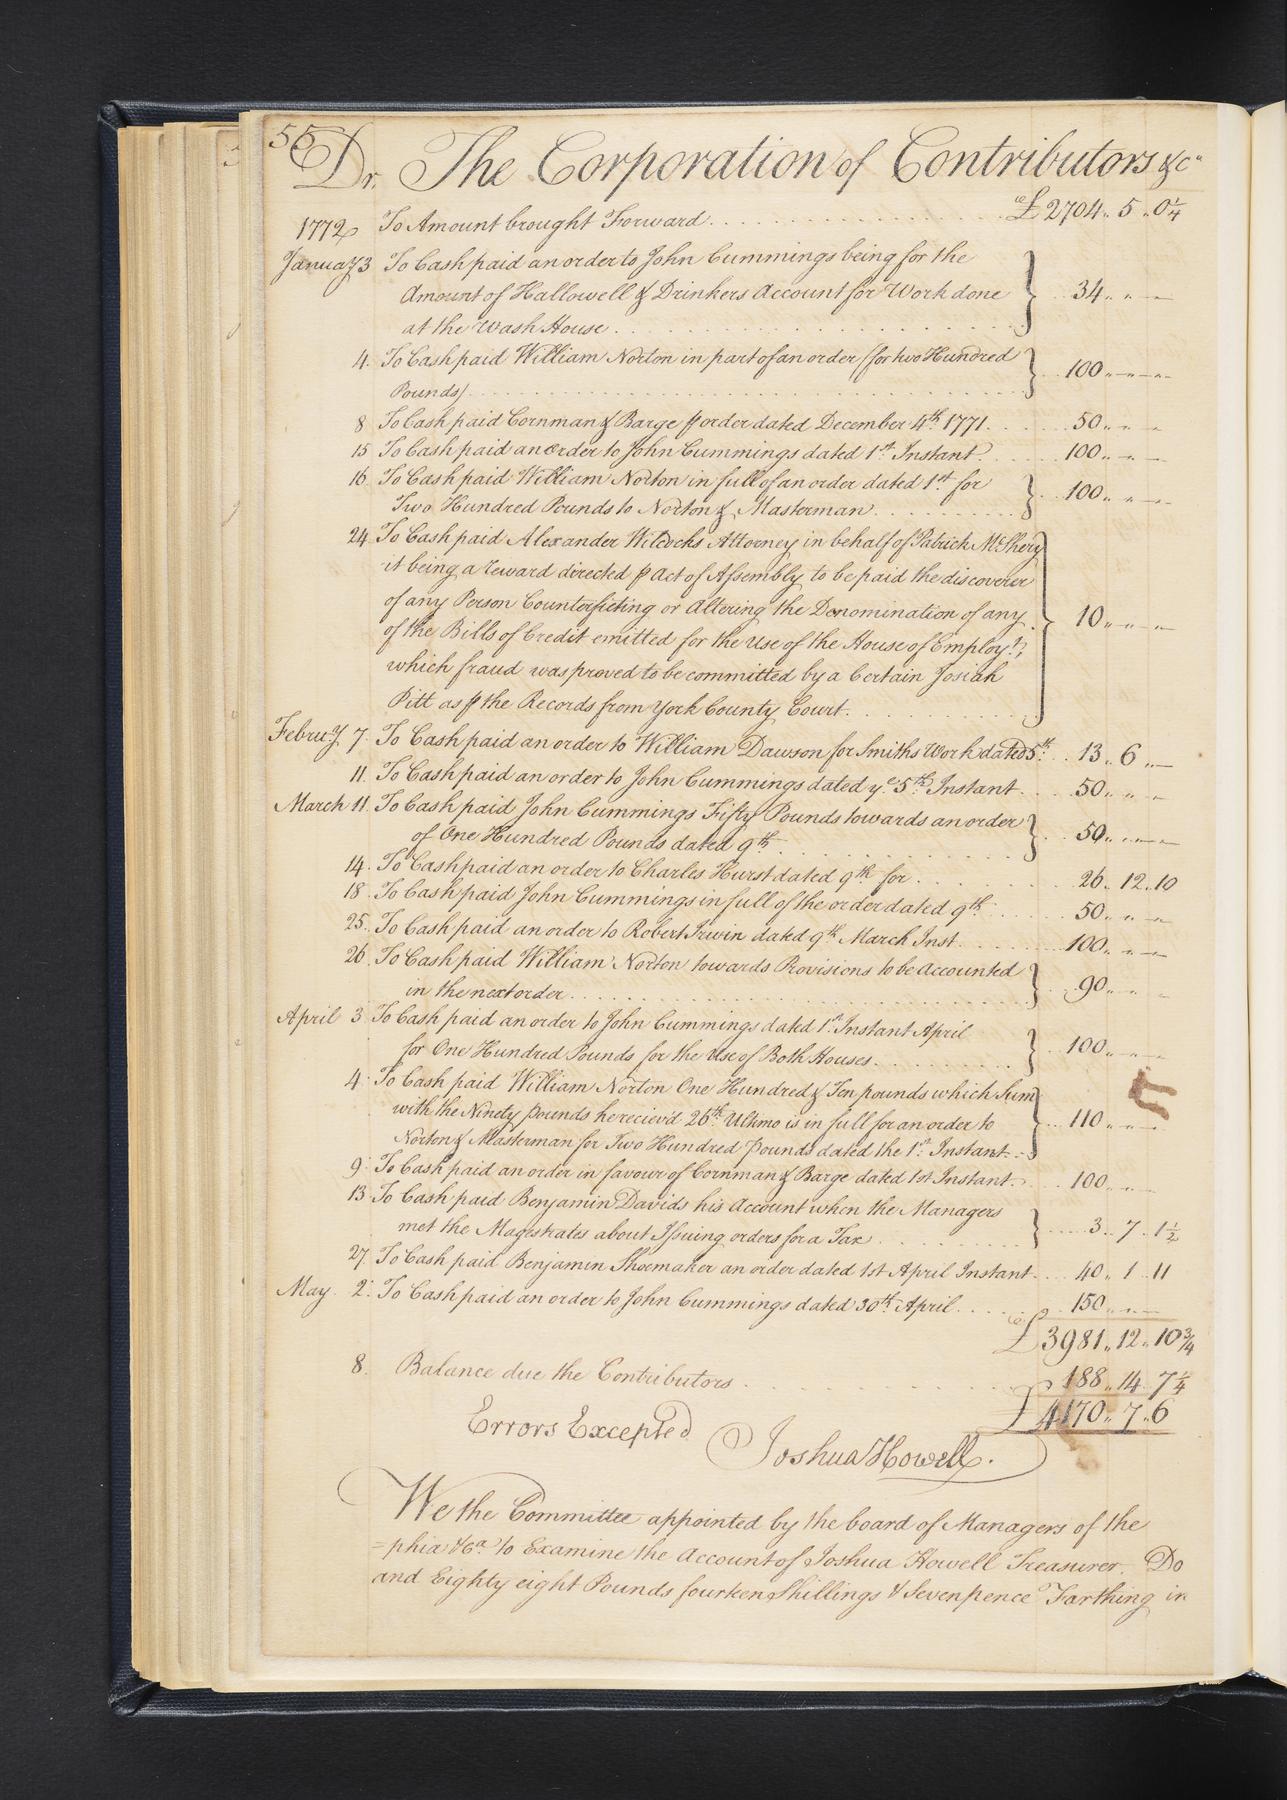 55
Dr. The Corporation of Contributors &ca
1772 To Amount brought Forward . . . £2704 .. 5 .. 0 1/4
January 3 To Cash paid an order to John Cummings being for the
Amount of Hallowell & Drinkers Account for Work done
at the Wash House . . . 34 .. " .. —
4. To Cash paid William Norton in part of an order (for two Hundred
Pounds) . . . 100 .. — " —
8 To Cash paid Cornman & Barge ⅌ order dated December 4th 1771. . . 50 .. " .. —
15 To Cash paid an order to John Cummings dated 1st Instant. . . 100 .. " .. —
16. To Cash paid William Norton in full of an order dated 1st for
Two Hundred Pounds to Norton & Masterman . . . 100 .. " .. —
24 To Cash paid Alexander Wilcocks Attorney in behalf of Patrick McShery
it being a reward directed ⅌ Act of Assembly to be paid the discoverer
of any Person Counterfieting or Altering the Denomination of any
of the Bills of Credit emitted for the Use of the House of Employt;
which fraud was proved to be committed by a Certain Josiah
Pitt as ⅌ the Records from York County Court. . . 10 .. — " —
Febru.y 7. To Cash paid an order to William Dawson for Smiths Work dated 5th . . 13 .. 6 .. —
11. To Cash paid an order to John Cummings dated ye 5th Instant . . . 50 .. " .. —
March 11. To Cash paid John Cummings Fifty Pounds towards an order
of One Hundred Pounds dated 9th . . . 50 .. " .. —
14. To Cash paid an order to Charles Hurst dated 9th for . . . 26 .. 12 .. 10
18. To Cash paid John Cummings in full of the order dated 9th . . . 50 .. " .. —
25. To Cash paid an order to Robert Irwin dated 9th March Inst. . . 100 .. " .. —
26. To Cash paid William Norton towards Provisions to be Accounted
in the next order . . . 90 .. — " —
April 3 To Cash paid an order to John Cummings dated 1st Instant April
for One Hundred Pounds for the Use of Both Houses. . . 100 .. " .. —
4. To Cash paid William Norton One Hundred & Ten pounds which Sum
with the Ninety pounds he reciev'd 26th Ultimo is in full for an order to
Norton & Masterman for Two Hundred Pounds dated the 1st Instant . . 110 .. — " —
9. To Cash paid an order in favour of Cornman & Barge dated 1st Instant. . . 100 .. " .. —
13 To Cash paid Benjamin Davids his Account when the Managers
met the Magestrates about Issuing orders for a Tax . . . 3 .. 7 .. 1 1/2
27. To Cash paid Benjamin Shoemaker an order dated 1st April Instant . . 40 .. 1 .. 11
May 2. To Cash paid an order to John Cummings dated 30th April . . . 150 .. " .. —
£3981 .. 12 .. 10 3/4
8. Balance due the Contributors . . . 188 .. 14 .. 7 1/4
£4170 .. 7 .. 6
Errors Excepted
Joshua Howell.
We the Committee appointed by the board of Managers of the
=phia &Ca to Examine the Account of Joshua Howell Treasurer. Do
and Eighty eight Pounds fourteen Shillings & Sevenpence Farthing in